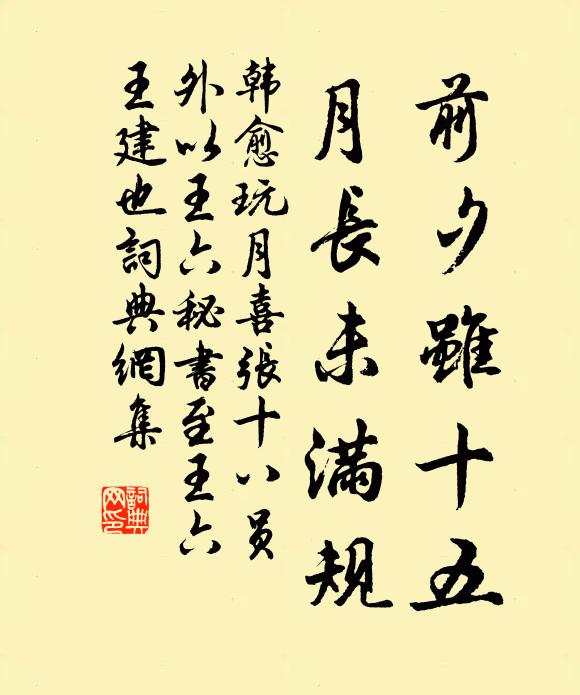 前夕雖十五
月長未滿規
韩愈玩月喜張十八员
外以王六秘書至王六
王建也詞典網集
詞典
网印